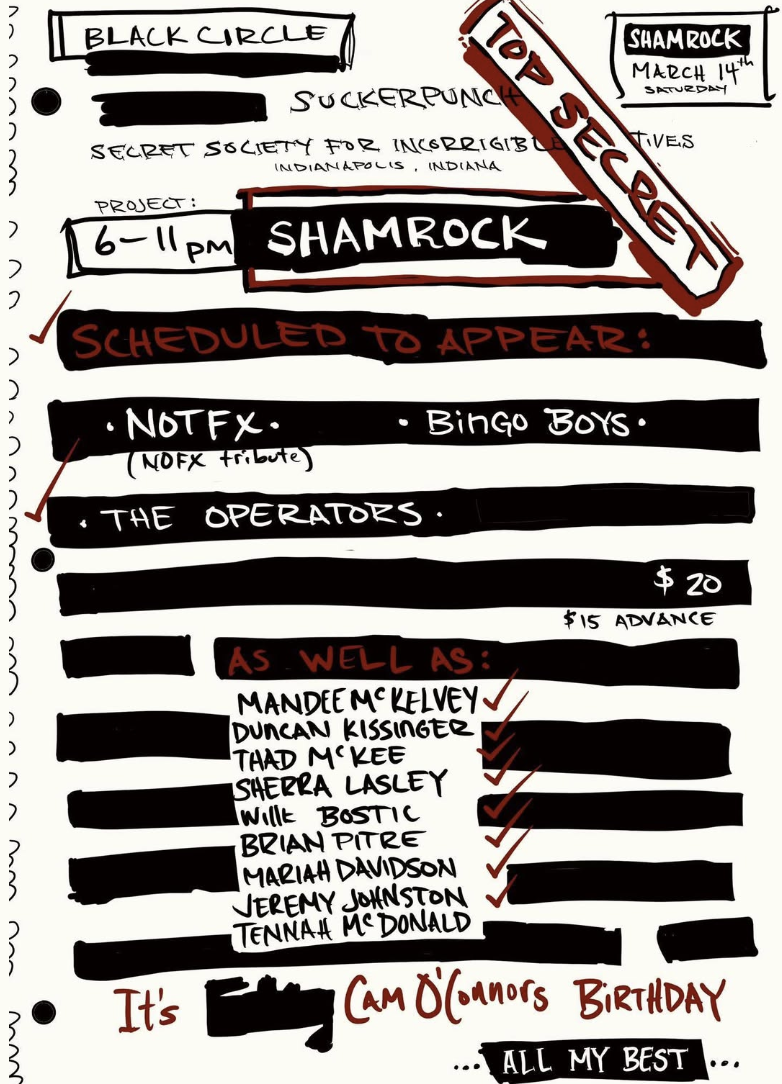 BLACK CIRCLE
SHAMROCK
MARCH 14th
SATURDAY
TOP SECRET
SUCKERPUNCH
SECRET SOCIETY FOR INCORRIGIBLE TIVES
INDIANAPOLIS, INDIANA
PROJECT:
6-11 pm SHAMROCK
SCHEDULED TO APPEAR:
· NOTFX · · BinGO BOYS ·
(NOFX tribute)
· THE OPERATORS ·
$ 20
$15 ADVANCE
AS WELL AS:
MANDEE McKELVEY
DUNCAN KISSINGER
THAD McKEE
SHERRA LASLEY
Willk BOSTIC
BRIAN PITRE
MARIAH DAVIDSON
JEREMY JOHNSTON
TENNAH McDONALD
It's CAM O'Connors BiRTHDAY
... ALL MY BEST ...